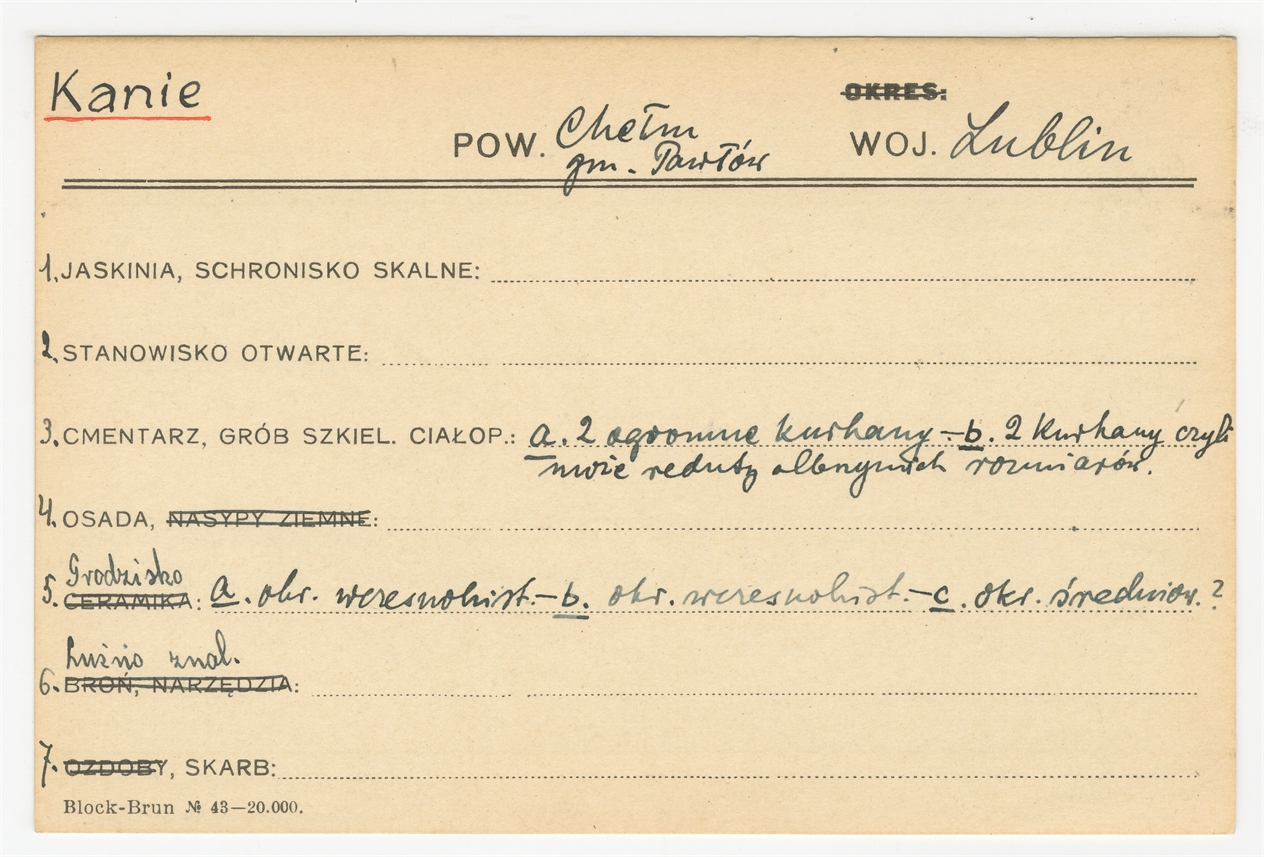 Kanie
OKRES:
POW. Chełm WOJ. Lublin
gm. Pawłów
1. JASKINIA, SCHRONISKO SKALNE:
2. STANOWISKO OTWARTE:
3. CMENTARZ, GRÓB SZKIEL. CIAŁOP.: a. 2 ogromne kurhany – b. 2 kurhany czyli
reduty olbrzymich rozmiarów.
4. OSADA, NASYPY ZIEMNE:
Grodzisko
5. CERAMIKA: a. okr. wczesnohist. – b. okr. wczesnohist. – c. okr. średniow. ?
Luźno znal.
6. BROŃ, NARZĘDZIA:
7. OZDOBY, SKARB:
Block-Brun № 43—20.000.